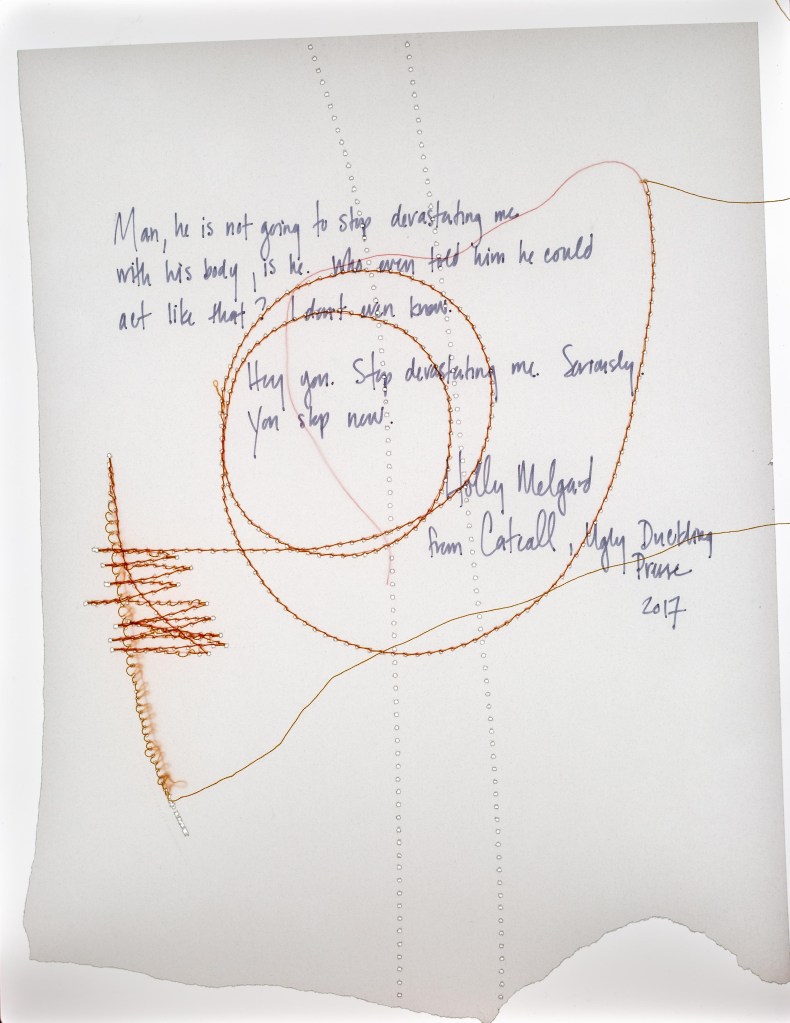 Man, he is not going to stop devastating me
with his body, is he. Who even told him he could
act like that? I don't even know.
Hey you. Stop devastating me. Seriously.
You stop now.
Holly Melgard
from Catcall, Ugly Duckling
Presse
2017